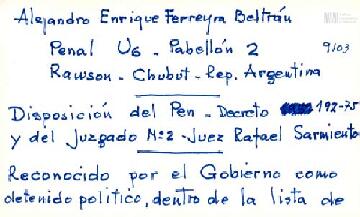 Alejandro Enrique Ferreyra Beltrán
Penal U6 - Pabellón 2 9103
Rawson - Chubut - Rep. Argentina
Disposición del Pen - Decreto 192-75
y del Juzgado Nº2 - Juez Rafael Sarmiento
Reconocido por el Gobierno como
detenido politico, dentro de la lista de